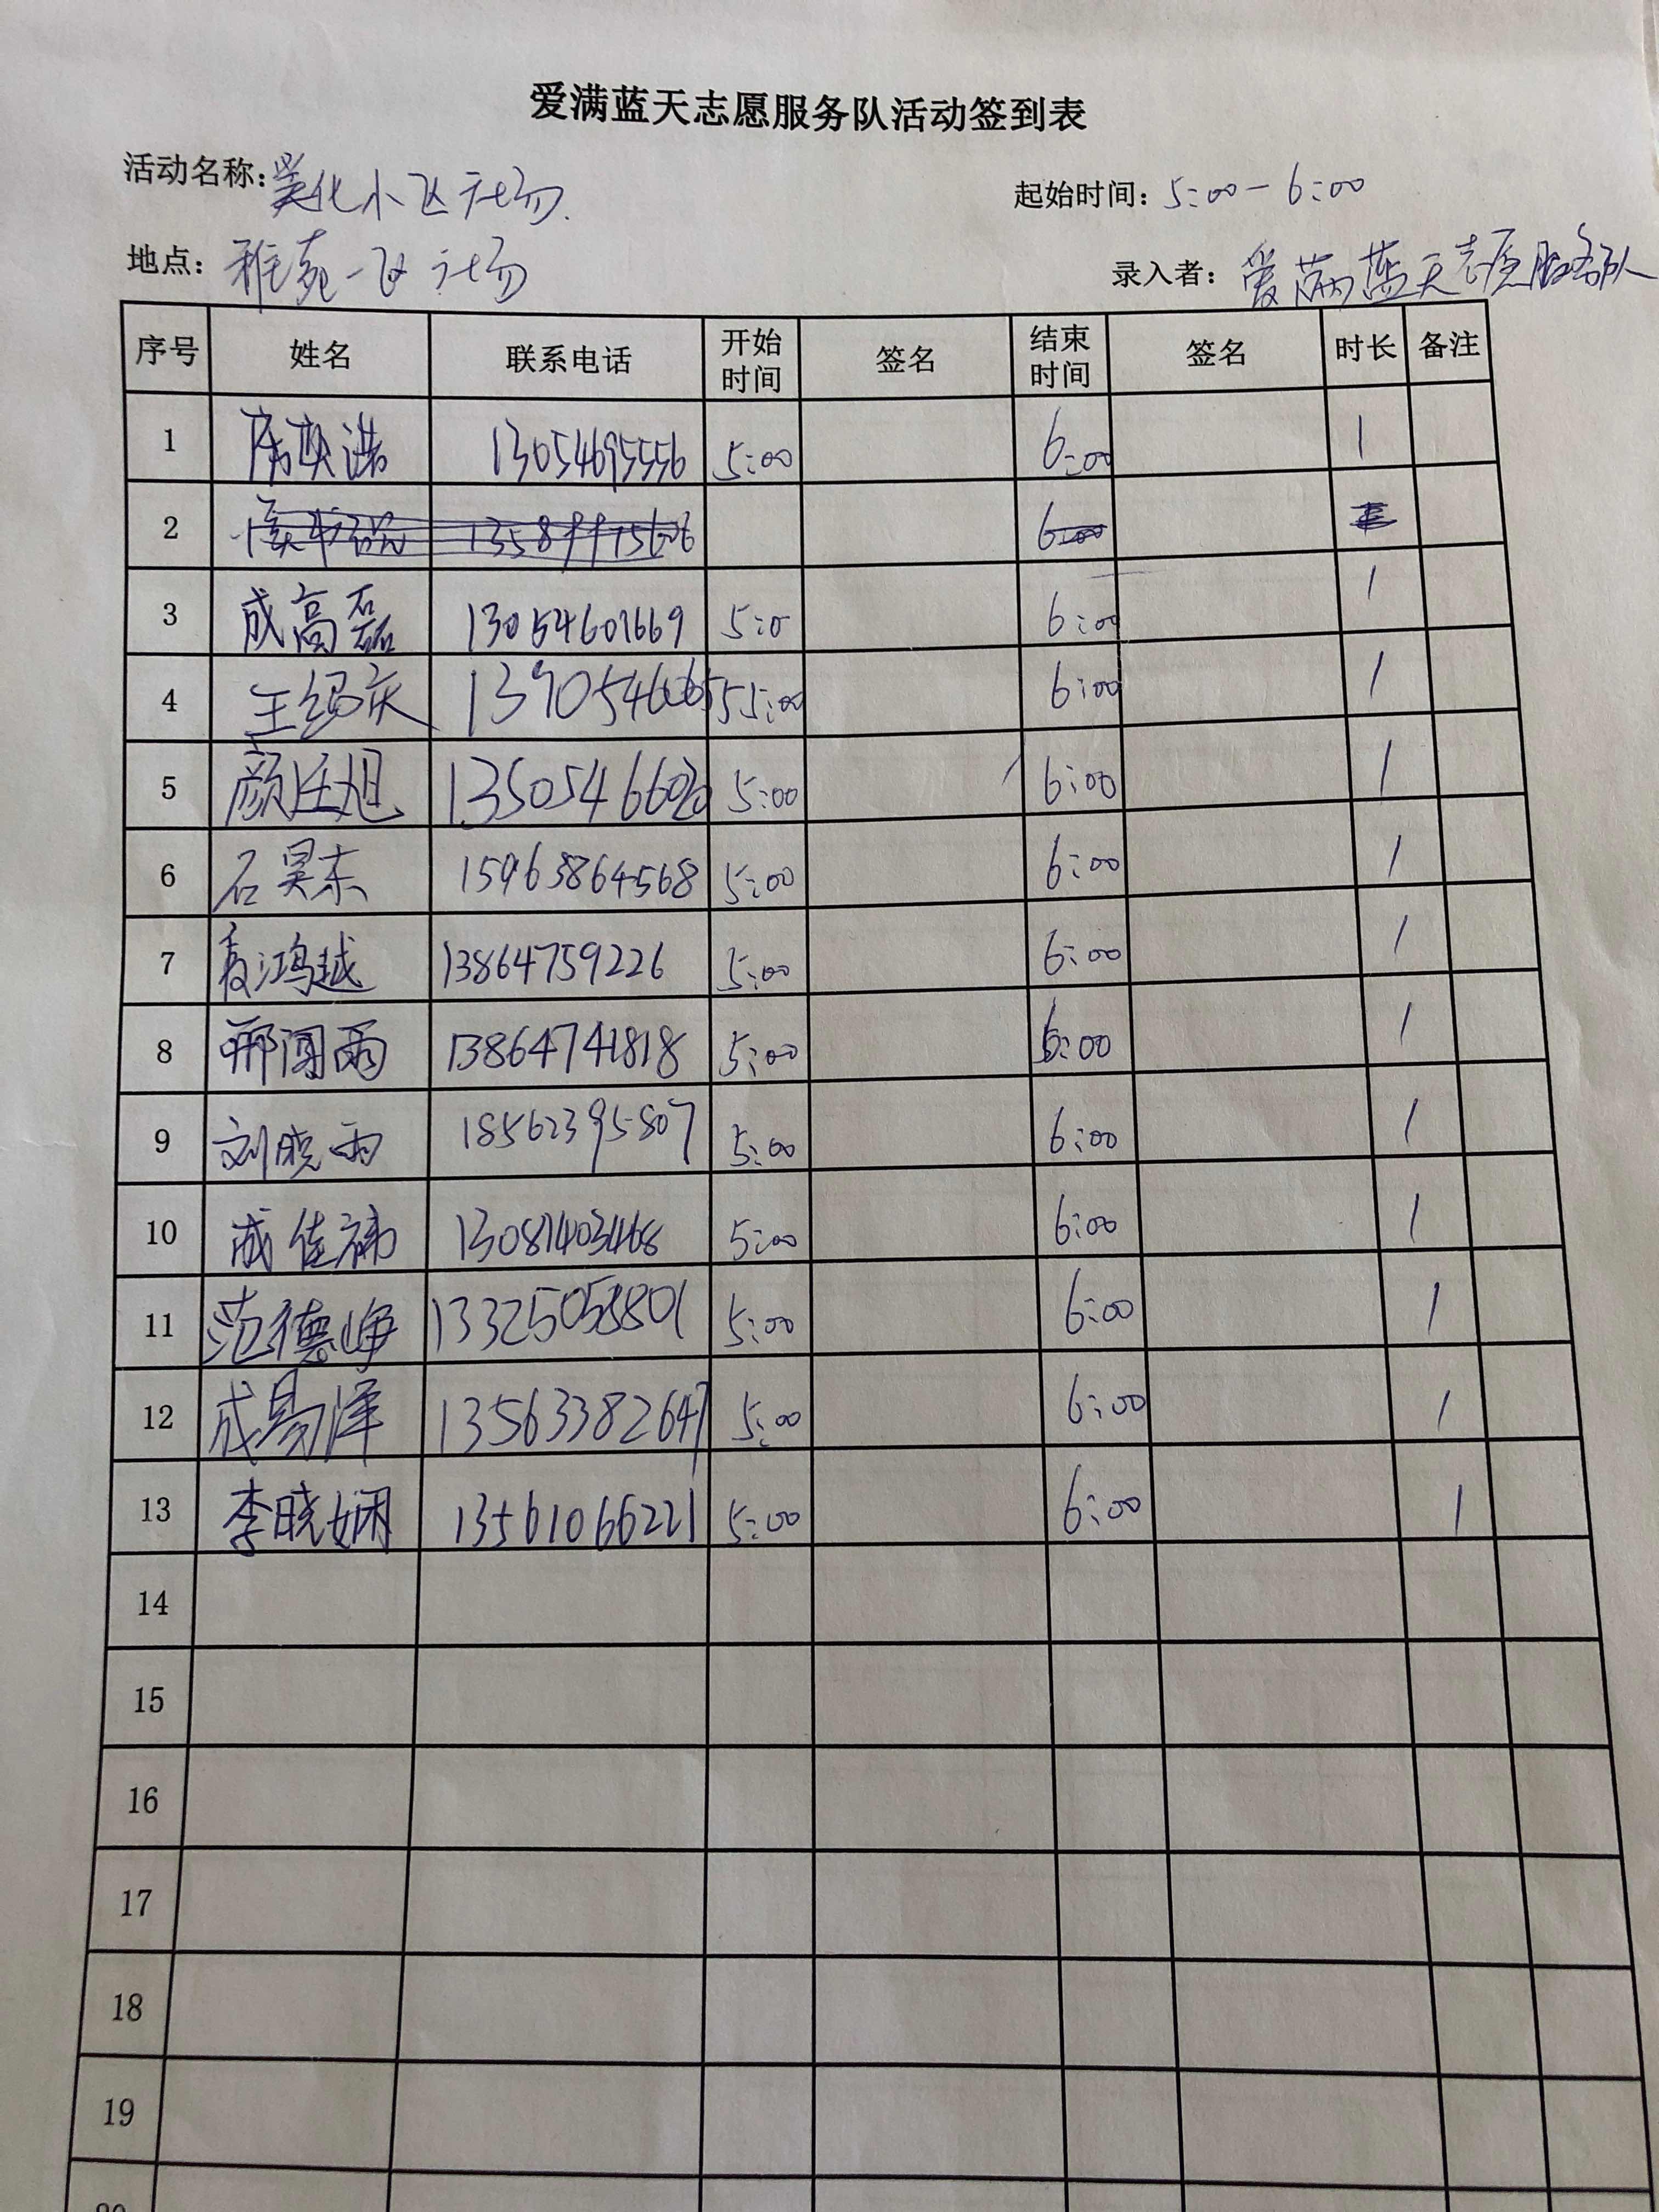 爱满蓝天志愿服务队活动签到表
活动名称:美化小区广场.
起始时间: 5:00-6:00
地点: 雅苑一区广场
录入者: 爱满蓝天志愿服务队
序号 姓名 联系电话 开始时间 签名 结束时间 签名 时长 备注
1 13054695556 5:00 6:00 1
2 6:00
3 成高磊 13054601669 5:0 6:00 1
4 王绍庆 5:00 6:00 1
5 颜廷旭 5:00 6:00 1
6 石昊东 15963864568 5:00 6:00 1
7 鸿越 13864759226 5:00 6:00 1
8 邢闰雨 13864741818 5:00 6:00 1
9 刘晓雨 18562395807 5:00 6:00 1
10 成佳祎 13081403468 5:00 6:00 1
11 范德峥 13325058801 5:00 6:00 1
12 成易泽 13563382647 5:00 6:00 1
13 李晓娴 13561066221 5:00 6:00 1
14
15
16
17
18
19
20